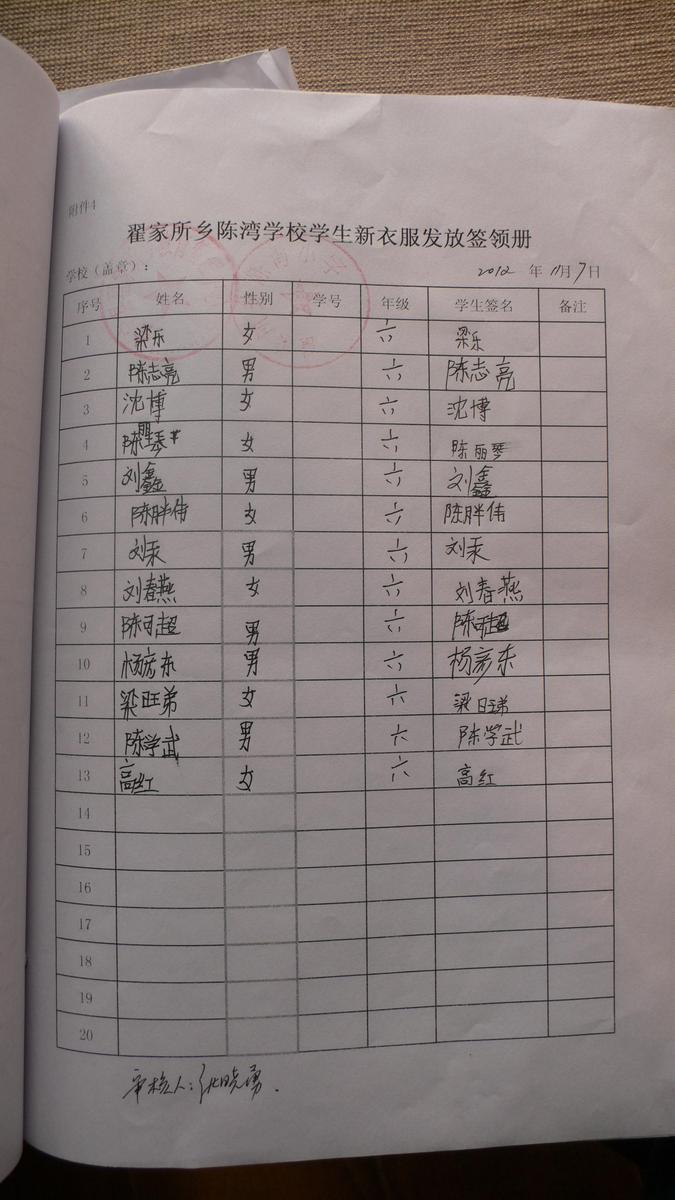 附件4
翟家所乡陈湾学校学生新衣服发放签领册
学校（盖章）： 2012 年 11月7日
序号 姓名 性别 学号 年级 学生签名 备注
1 梁乐 女 六 梁乐
2 陈志亮 男 六 陈志亮
3 沈博 女 六 沈博
4 女 六 陈丽琴
5 刘鑫 男 六 刘鑫
6 陈胖伟 女 六 陈胖伟
7 刘汞 男 六 刘汞
8 刘春燕 女 六 刘春燕
9 陈可超 男 六
10 杨彦东 男 六 杨彦东
11 梁旺弟 女 六 梁旺弟
12 陈学武 男 六 陈学武
13 高红 女 六 高红
14
15
16
17
18
19
20
审核人：张晓勇.